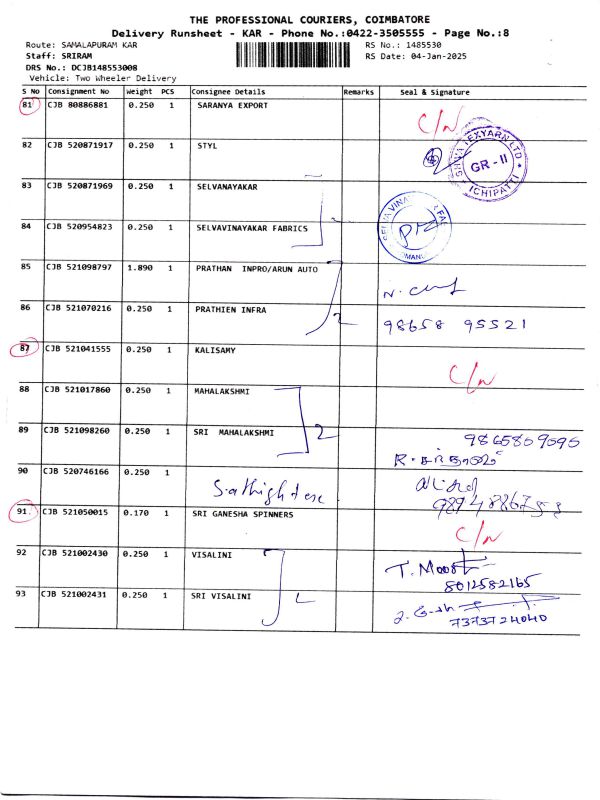 THE PROFESSIONAL COURIERS, COIMBATORE
Delivery Runsheet - KAR - Phone No.:0422-3505555 - Page No.:8
Route: SAMALAPURAM KAR RS No.: 1485530
Staff: SRIRAM RS Date: 04-Jan-2025
DRS No.: DCJB148553008
Vehicle: Two Wheeler Delivery
S No Consignment No Weight PCS Consignee Details Remarks Seal & Signature
81 CJB 80886881 0.250 1 SARANYA EXPORT C/N
82 CJB 520871917 0.250 1 STYL
SHIVA TEXYARN LTD
GR-II
ICHIPATTI
83 CJB 520871969 0.250 1 SELVANAYAKAR
84 CJB 520954823 0.250 1 SELVAVINAYAKAR FABRICS 2
85 CJB 521098797 1.890 1 PRATHAN INPRO/ARUN AUTO
86 CJB 521070216 0.250 1 PRATHIEN INFRA 2 98658 95521
87 CJB 521041555 0.250 1 KALISAMY C/N
88 CJB 521017860 0.250 1 MAHALAKSHMI
89 CJB 521098260 0.250 1 SRI MAHALAKSHMI 2 9865869595
90 CJB 520746166 0.250 1
91 CJB 521050015 0.170 1 SRI GANESHA SPINNERS C/N
92 CJB 521002430 0.250 1 VISALINI T. Moorth
8012582165
93 CJB 521002431 0.250 1 SRI VISALINI 2
7373724040